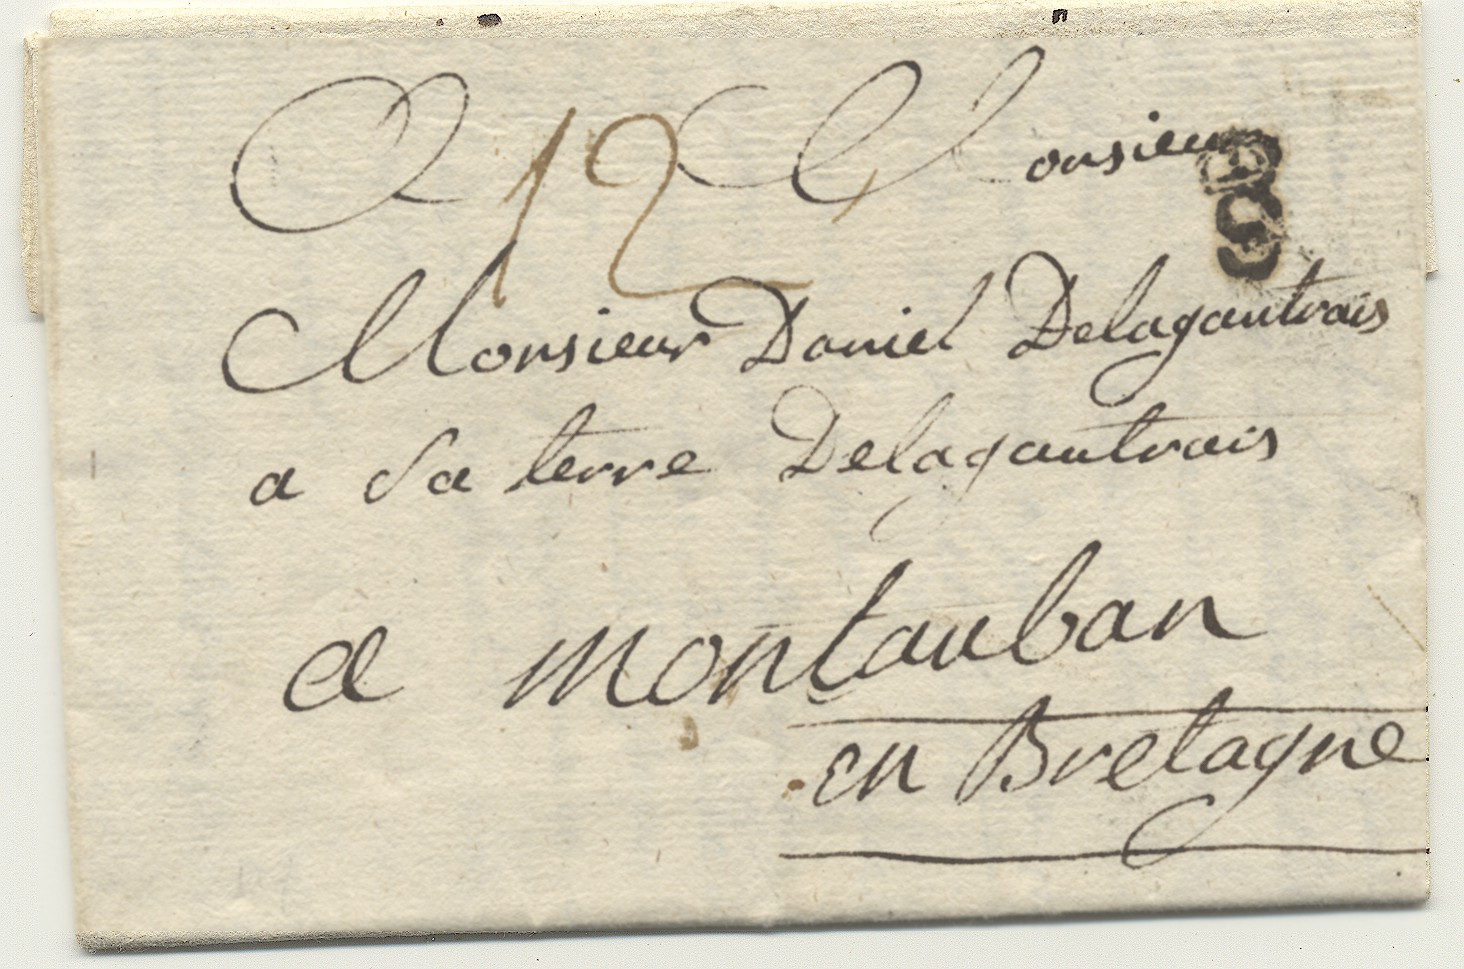 A Monsieur
12
Monsieur Daniel Delagautrais
a Sa terre Delagautrais
a Montauban
en Bretagne